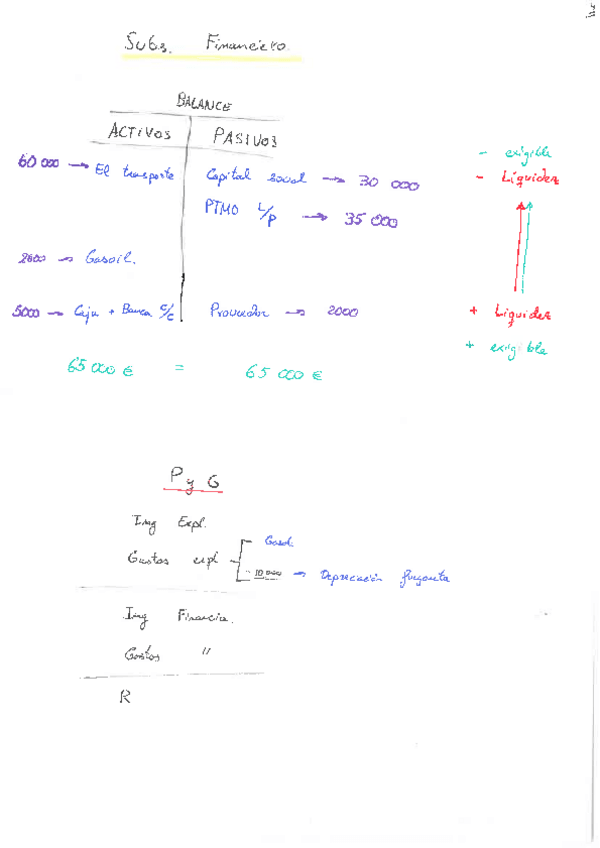 4
Subs. Financiero.
BALANCE
ACTIVOS PASIVOS
- exigible
60 000 → El transporte Capital social → 30 000 - Liquidez
PTMO L/p → 35 000
2600 → Gasoil.
5000 → Caja + Banca c/c Proveedor → 2000 + Liquidez
+ exigible
65 000 € = 65 000 €
P y G
Ing Expl.
Gasoil
Gastos expl
- 10 000 → Depreciación furgoneta
Ing Financia.
Gastos "
R